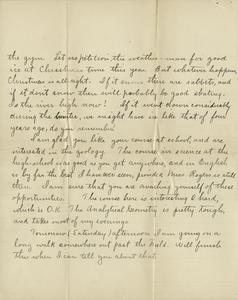 the gym. Let us petition the weather-man for good
ice at Christmas time this year. But whatever happens
Christmas is all right. If it snows there are rabbits, and
if it don't snow there will probably be good skating.
Is the river high now? If it went down considerably
during the winter, we might have ice like that of four
years ago, do you remember.
I am glad you like your course at school, and are
interested in the geology. The course in science at the
high-school was good as you get anywhere, and in English
is by far the best I have ever seen, provided Miss Rogers is still
there. I am sure that you are availing yourself of these
opportunities. The course here is interesting & hard,
which is O.K. The Analytical Geometry is pretty tough,
and takes most of my evenings.
Tomorrow (Saturday) afternoon I am going on a
long walk somewhere out past the field. Will finish
this when I can tell you about that.